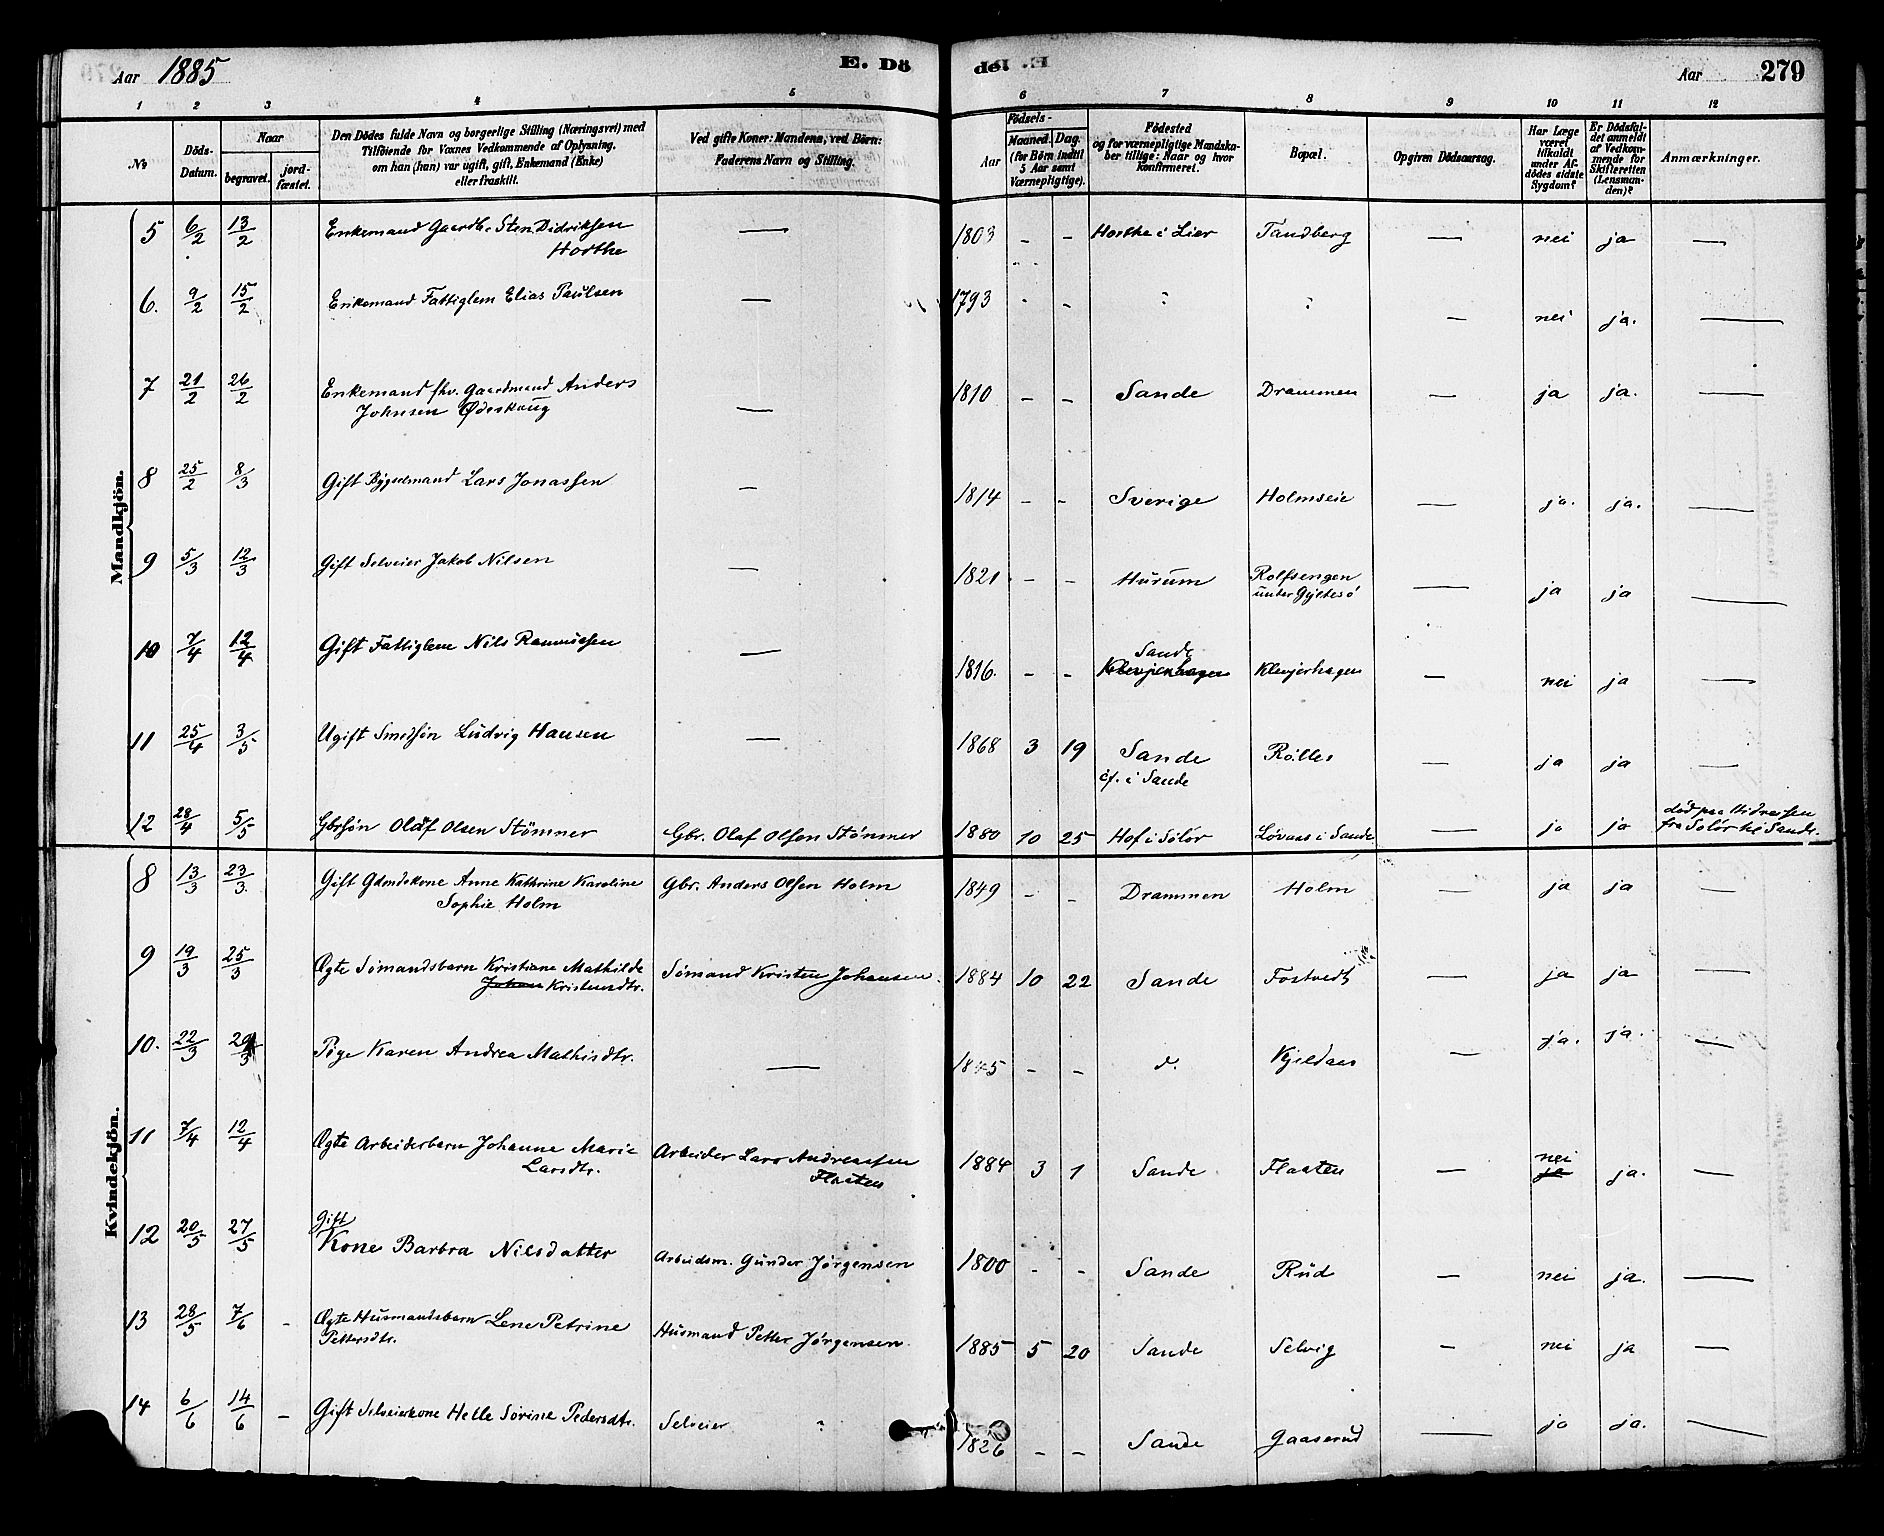 Aar 1885 E. Dö del E. Aar 279
1 2 3 4 5 6 7 8 9 10 11 12
№ Döds-Datum. Naar begravet. jord-fæstet.
Den Dödes fulde Navn og borgerlige Stilling (Næringsvei) med
Tilföiende for Voxnes Vedkommende af Oplysning,
om han (hun) var ugift, gift, Enkemand (Enke)
eller fraskilt.
Ved gifte Koner: Mandens, ved Börn:
Faderens Navn og Stilling.
Födsels-
Aar Maaned. Dag.
(for Börn indtil
5 Aar samt
Værnepligtige).
Födested
og for værnepligtige Mandska-
ber tillige: Naar og hvor
konfirmeret.
Bopæl.
Opgiven Dödsaarsag.
Har Læge
været
tilkaldt
under Af-
dödes sidste
Sygdom?
Er Dödsfal-
det anmeldt
af Vedkom-
mende for
Skifteretten
(Lensman-
den)?
Anmærkninger.
Mandkjön.
5 6/2 13/2 Enkemand Gaardb. Sten Didriksen — 1803 - - Horthe i Lier Tandberg — nei ja —
Horthe
6. 9/2 15/2 Enkemand Fattiglem Elias Paulsen — 1793 - - : : — nei ja. —
7 21/2 26/2 Enkemand fhv. Gaardmand Anders — 1810 - - Sande Drammen — ja ja. —
Johnsen Ødeskoug
8 25/2 8/3 Gift Bygselmand Lars Jonassen — 1814 - - Sverige Holmseie — ja. ja. —
9 5/3 12/3 Gift Selveier Jakob Nilsen — 1821 - - Hurum Rolfsengen — ja ja —
under Gyltesö
10 7/4 12/4 Gift Fattiglem Nils Rasmussen — 1816. - - Sande Klevjerhagen — nei ja —
Klevjerhagen
11 25/4 3/5 Ugift Smedsøn Ludvig Hansen — 1868 3 19 Sande — ja ja —
cf. i Sande
12 28/4 5/5 Gbrsøn Olaf Olsen Stømner Gbr. Olaf Olsen Stømner 1880 10 25 Hof i Solør Løvaas i Sande — ja ja død paa
fra Solør til Sande.
Kvindekjön.
8 13/3 23/3 Gift Gdmdskone Anne Kathrine Karoline Gbr. Anders Olsen Holm 1849 - - Drammen Holm — ja ja —
Sophie Holm
9 19/3 25/3 Ægte Sømandsbarn Kristiane Mathilde Sømand Kristen Johansen 1884 10 22 Sande Fostvedt — ja ja —
Johan Kristensdtr.
10. 22/3 Pige Karen Andrea Mathisdtr. — 1845 - - d. Kjeldaas — ja. ja. —
11 7/4 12/4 Ægte Arbeiderbarn Johanne Marie Arbeider Lars Andreassen 1884 3 1 Sande Flaaten — nei ja. —
Larsdtr. Flaaten ja
12 20/5 27/5 Gift
Kone Barbra Nilsdatter Arbeidsm. Gunder Jørgensen 1800 - - Sande Rud — nei ja. —
13 28/5 7/6 - Ægte Husmandsbarn Lene Petrine Husmand Petter Jørgensen 1885 5 20 Sande Selvig — nei ja —
Pettersdtr.
14 6/6 14/6 - Gift Selveierkone Helle Sørine Pedersdtr. Selveier ? 1826 - - Sande Gaaserud — ja ja. —